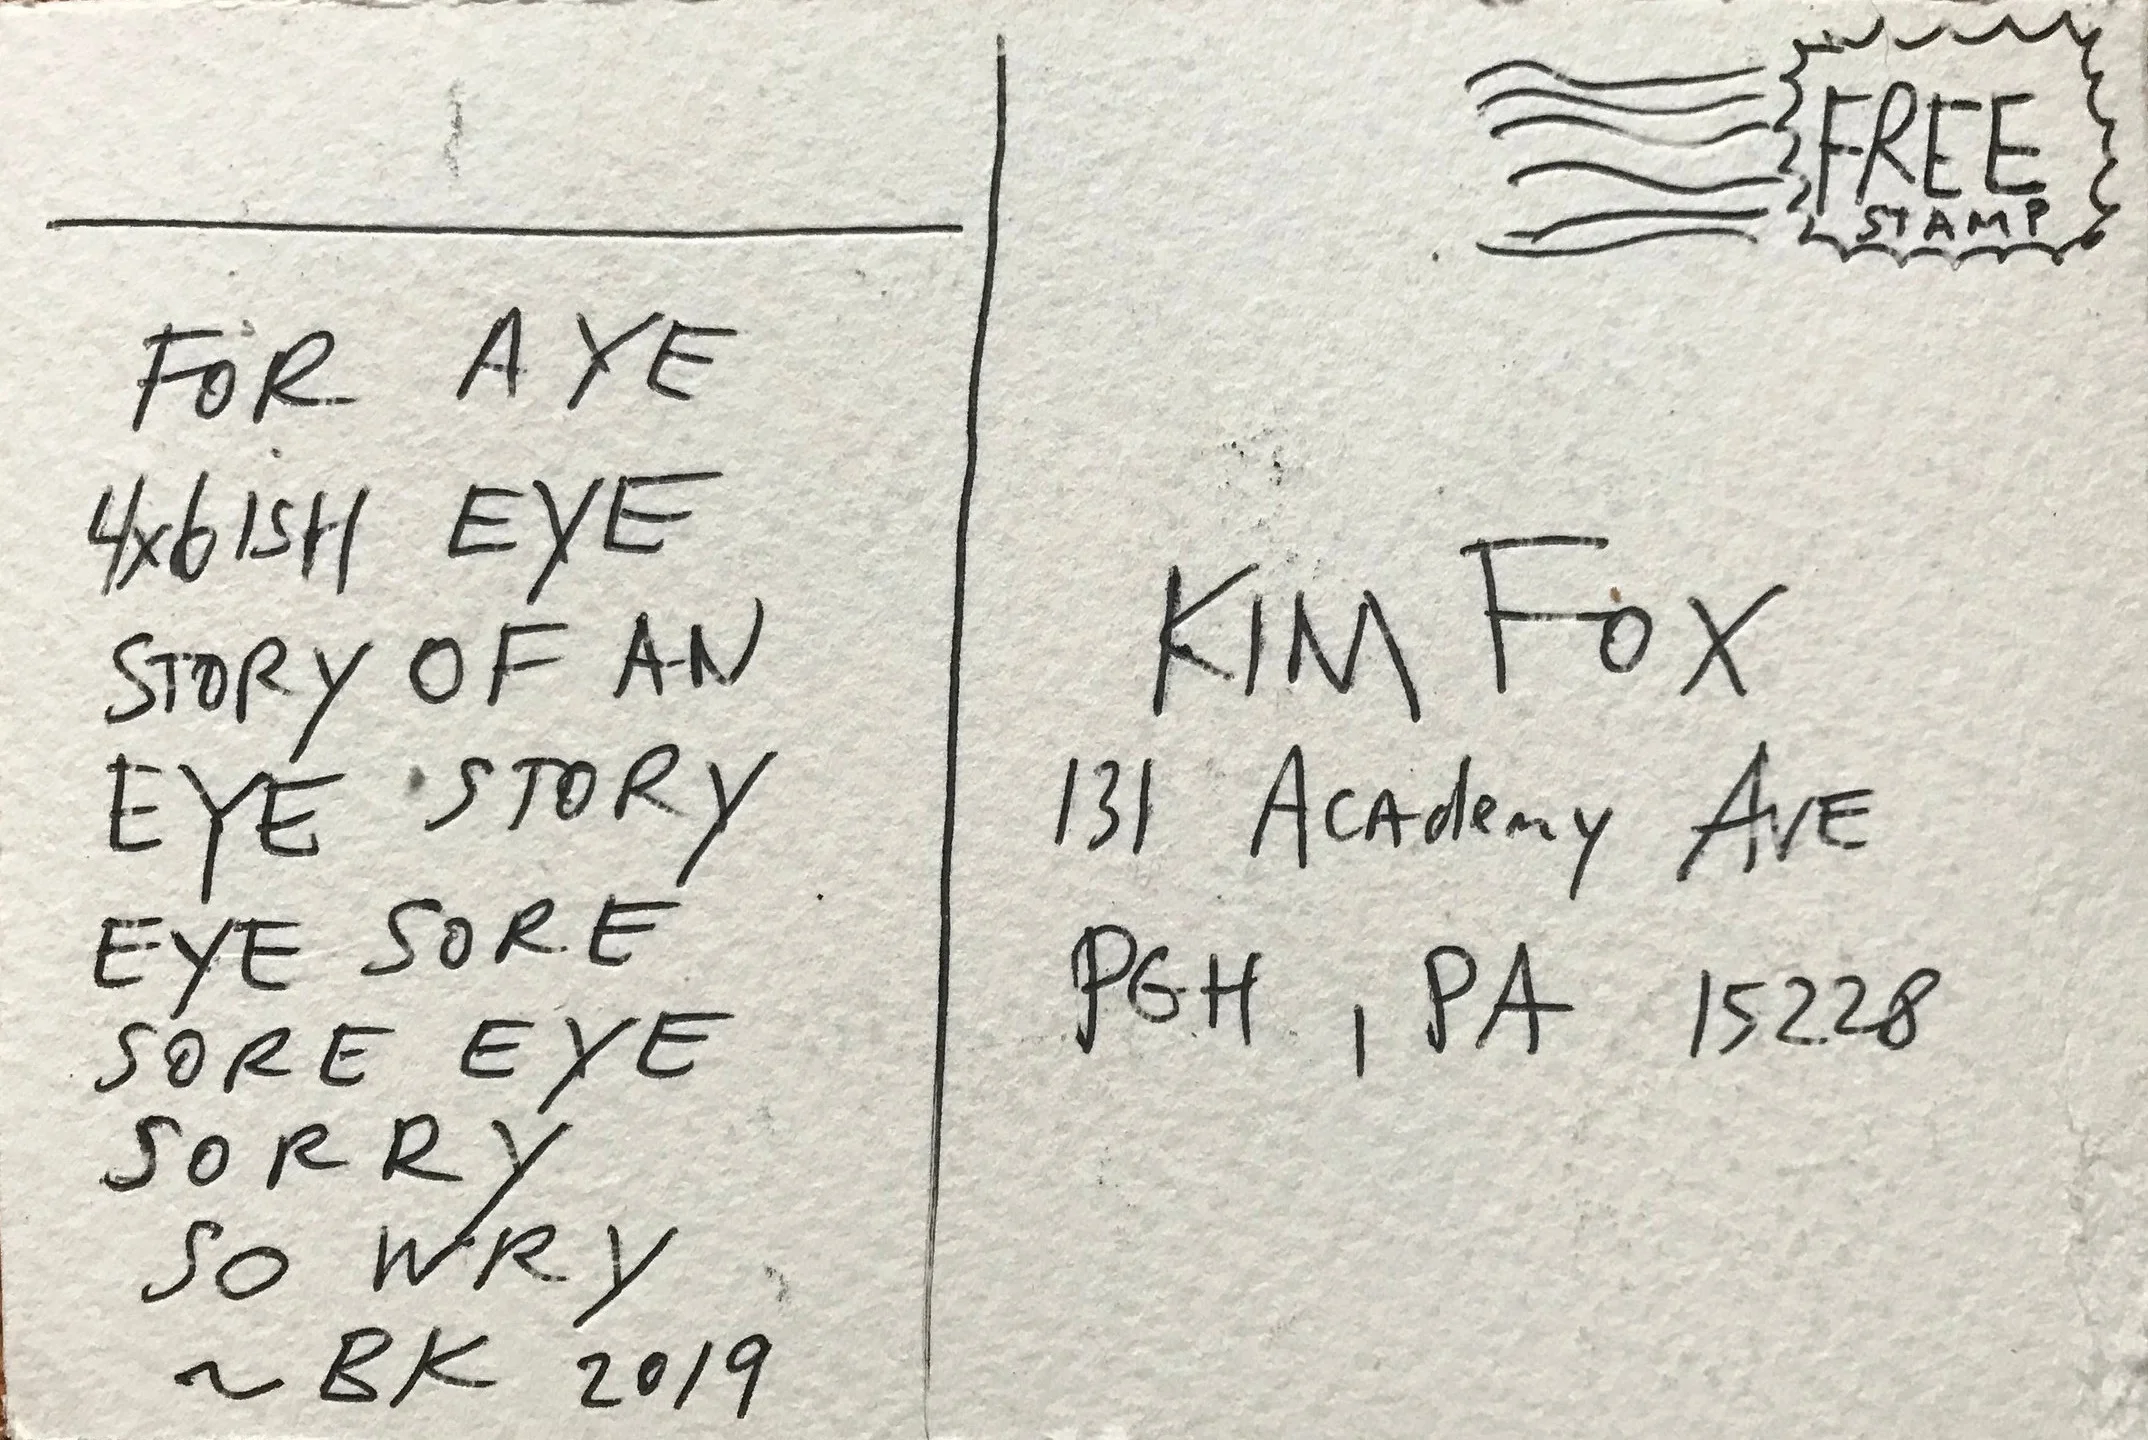 FOR AYE
4x6ISH EYE
STORY OF AN
EYE STORY
EYE SORE
SORE EYE
SORRY
SO WRY
~ BK 2019
FREE
STAMP
KIM FOX
131 ACAdemy AVE
PGH, PA 15228